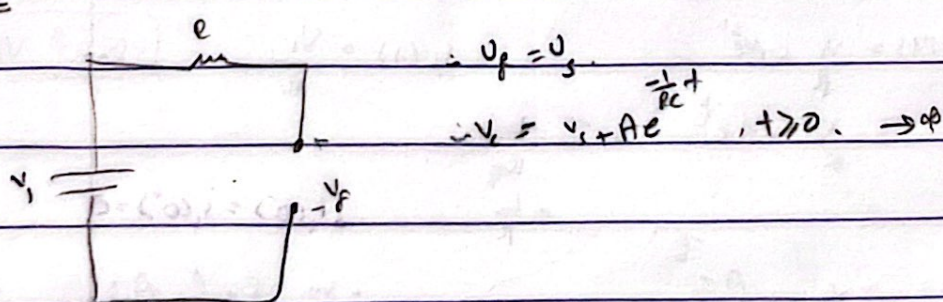 R
∴ V_f = V_s.
∴ V_c = V_s + A e^{-\frac{1}{RC}t} , t ≥ 0. → ∞
+
V_s
- V_f